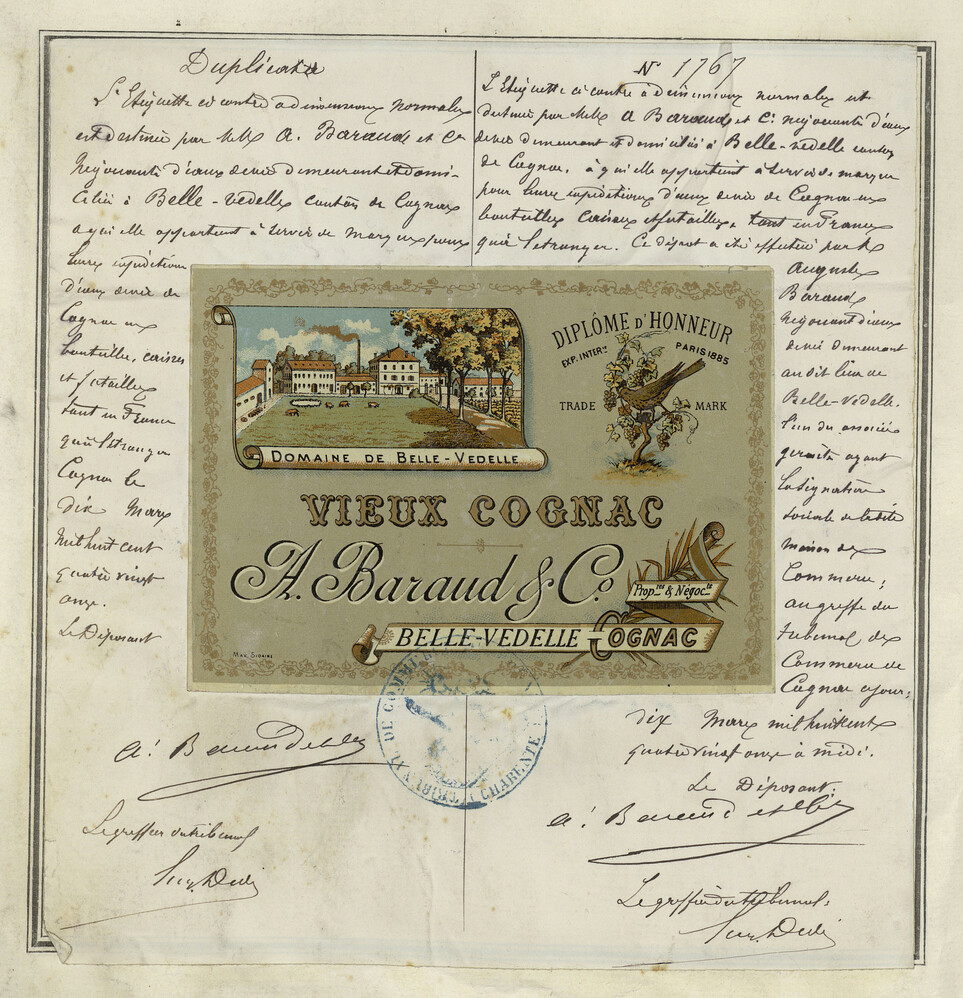 Duplicata
L'Etiquette ci contre a dimensions normales
est destinée par MM A. Baraud et Cie
Négociants d'eaux de vie demeurant et domi-
ciliés à Belle-Vedelle canton de Cognac
à qui elle appartient à servir de marque pour
leurs expéditions
d'eaux de vie de
Cognac en
bouteilles, caisses
et futailles
tant en France
qu'à l'étranger
Cognac le
dix Mars
mil huit cent
quatre vingt
onze.
Le Déposant
A. Baraud et Cie
Le greffier du tribunal
N° 1767
L'Etiquette ci contre à dimensions normales est
destinée par MM A Baraud et Cie négociants d'eaux
de vie demeurant et domiciliés à Belle-Vedelle canton
de Cognac, à qui elle appartient à servir de marque
pour leurs expéditions d'eaux de vie de Cognac en
bouteilles caisses et futailles, tant en France
qu'à l'étranger. Ce dépot a été effectué par M
Auguste
Baraud
Négociant d'eaux
de vie demeurant
au dit lieu de
Belle-Vedelle.
l'un des associés
gérants ayant
la signature
sociale de la dite
maison de
Commerce;
au greffe du
Tribunal de
Commerce de
Cognac ce jour;
dix Mars mil huit cent
quatre vingt onze à midi.
Le Déposant:
A. Baraud et Cie
Le greffier du tribunal:
DIPLÔME D'HONNEUR
EXP. INTERle PARIS 1885
TRADE MARK
DOMAINE DE BELLE-VEDELLE
VIEUX COGNAC
A. Baraud & Co
Propres & Négocts
BELLE-VEDELLE COGNAC
CHARENTE